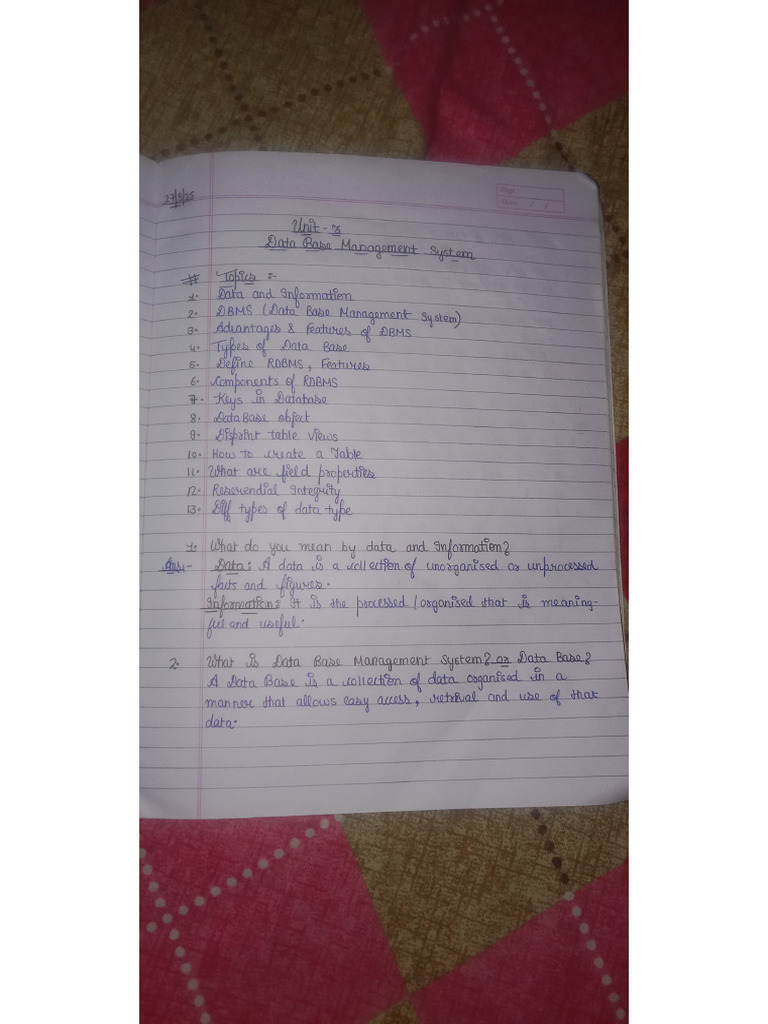 27/8/25
Page:
Date: / /
Unit - 3
Data Base Management System
# Topics :-
1. Data and Information
2. DBMS (Data Base Management System)
3. Advantages & Features of DBMS
4. Types of Data Base
5. Define RDBMS, Features
6. Components of RDBMS
7. Keys in Database
8. Data Base object
9. Disprint table views
10. How to create a Table
11. What are field properties
12. Reserendial Integrity
13. Diff types of data type
1. What do you mean by data and Information?
Ans:- Data: A data is a collection of unorganised or unprocessed
facts and figures.
Information: It is the processed/organised that is meaning-
ful and useful.
2. What is Data Base Management System? or Data Base?
A Data Base is a collection of data organised in a
manner that allows easy access, retrival and use of that
data.